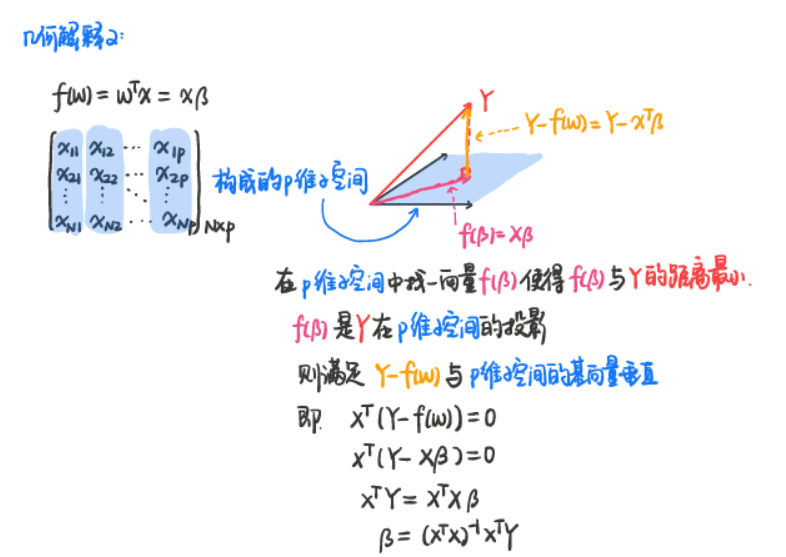 几何解释2:
f(w) = wᵀx = xβ
x₁₁ x₁₂ ... x₁p
x₂₁ x₂₂ ... x₂p
⋮ ⋮ ⋱ ⋮
xN₁ xN₂ ... xNp N×p
构成的p维子空间
Y
Y-f(w)=Y-xᵀβ
f(β)=xβ
在p维子空间中找一向量f(β)使得f(β)与Y的距离最小.
f(β)是Y在p维子空间的投影
则满足 Y-f(w)与p维子空间的基向量垂直
即 xᵀ(Y-f(w))=0
xᵀ(Y-xβ)=0
xᵀY=xᵀxβ
β=(xᵀx)⁻¹xᵀY